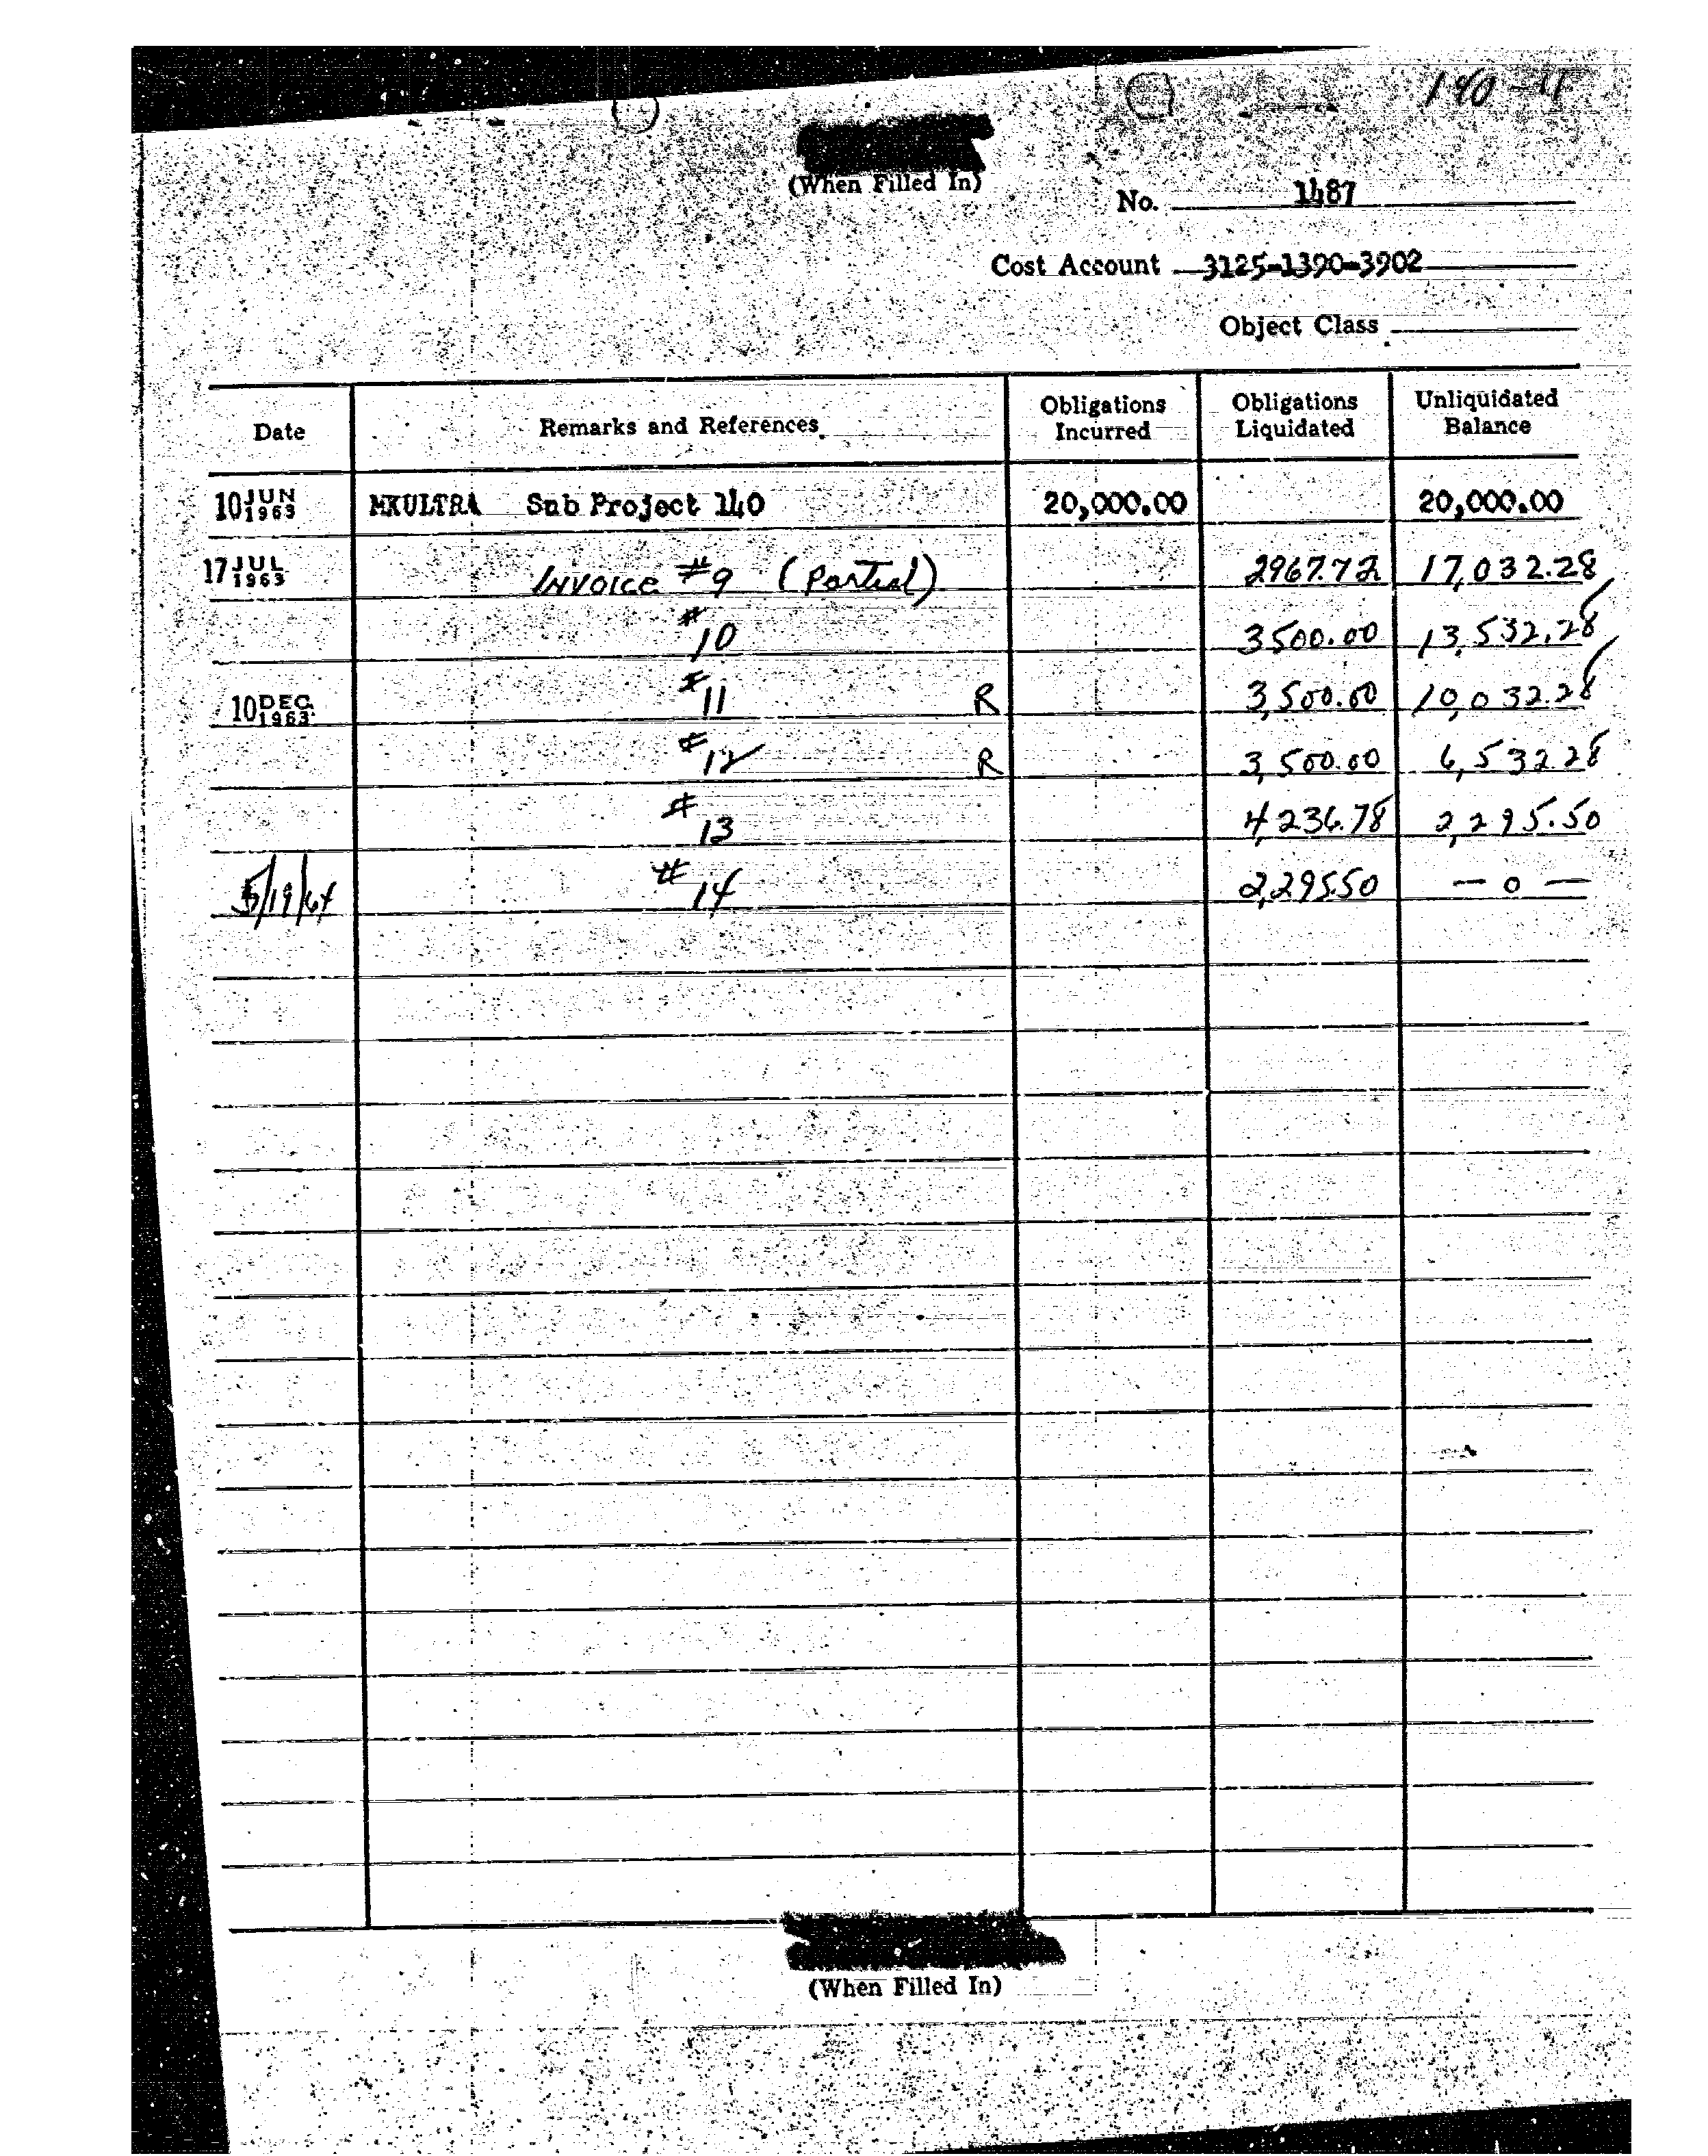 (When Filled In)
No. 1487
Cost Account 3125-1390-3902
Object Class
Date Remarks and References Obligations Incurred Obligations Liquidated Unliquidated Balance
10 JUN 1963 MKULTRA Sub Project 140 20,000.00 20,000.00
17 JUL 1963 Invoice #9 (Partial) 2967.72 17,032.28
#10 3500.00 13,532.28
10 DEC 1963 #11 R 3,500.00 10,032.28
#12 R 3,500.00 6,532.28
#13 4,236.78 2,295.50
5/19/64 #14 2,295.50 — 0 —
(When Filled In)